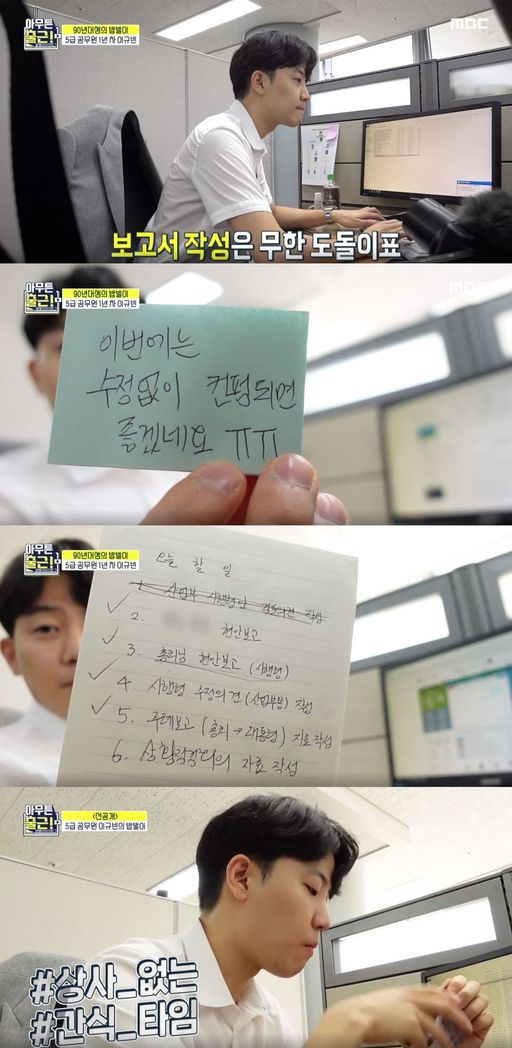 아무튼
출근!
90년대생의 밥벌이
5급 공무원 1년 차 이규빈
MBC
보고서 작성은 무한 도돌이표
아무튼
출근!
90년대생의 밥벌이
5급 공무원 1년 차 이규빈
MBC
이번에는
수정없이 컨펌되면
좋겠네요 ㅠㅠ
아무튼
출근!
90년대생의 밥벌이
5급 공무원 1년 차 이규빈
오늘 할 일
1. 산업부 시행령안 검토의견 작성
2.
현안보고
3. 총리님 현안보고 (시행령)
4. 시행령 수정의견 (산업부등) 작성
5. 구체보고 (총리 → 대통령) 자료 작성
6. 자료 작성
아무튼
출근!
<선공개>
5급 공무원 이규빈의 밥벌이
#상사_없는
#간식_타임